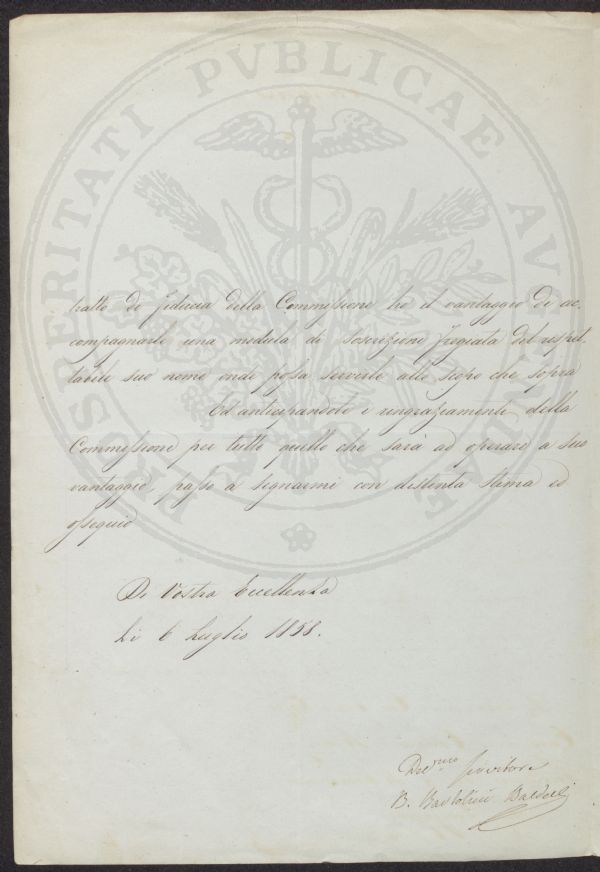 PROSPERITATI PVBLICAE AVGENDAE
tratto di fiducia della Commissione ho il vantaggio di ac-
compagnarle una modula di soscrizione fregiata del rispet-
tabile suo nome onde possa servirle allo scopo che sopra
Ed anticipandole i ringraziamenti della
Commissione per tutto quello che sarà ad operare a suo
vantaggio, passo a segnarmi con distinta stima ed
ossequio
Di Vostra Eccellenza
Li 6 Luglio 1858.
Dev.mo Servitore
B. Bartolini Baldelli